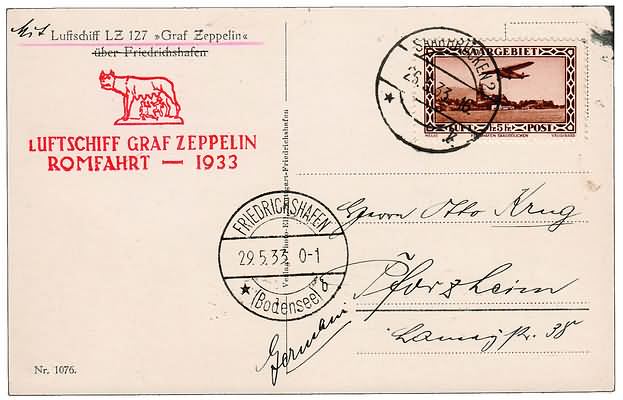 Mit Luftschiff LZ 127 »Graf Zeppelin«
über Friedrichshafen
LUFTSCHIFF GRAF ZEPPELIN
ROMFAHRT — 1933
SAARBRÜCKEN 2
SAARGEBIET
LUFT 5 POST
FRIEDRICHSHAFEN
29.5.33 0-1
(Bodensee)
Herrn Otto Krug
Pforzheim
38
Germani
Nr. 1076.